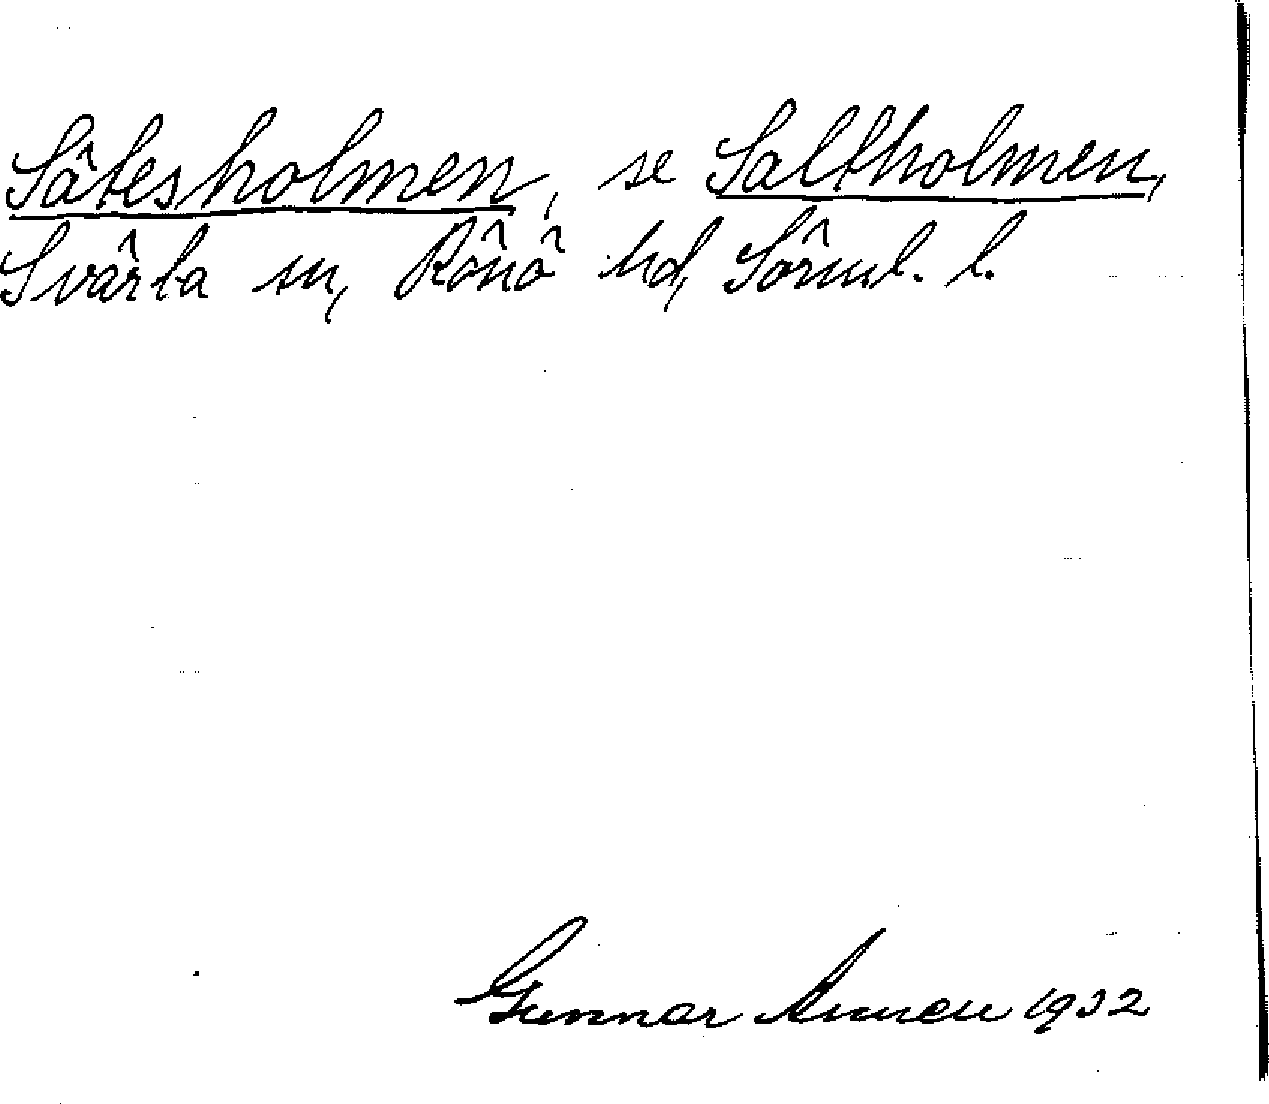 Sätesholmen, se Saltholmen,
Svärta sn, Rönö hd, Sörml. l.
Gunnar 1932